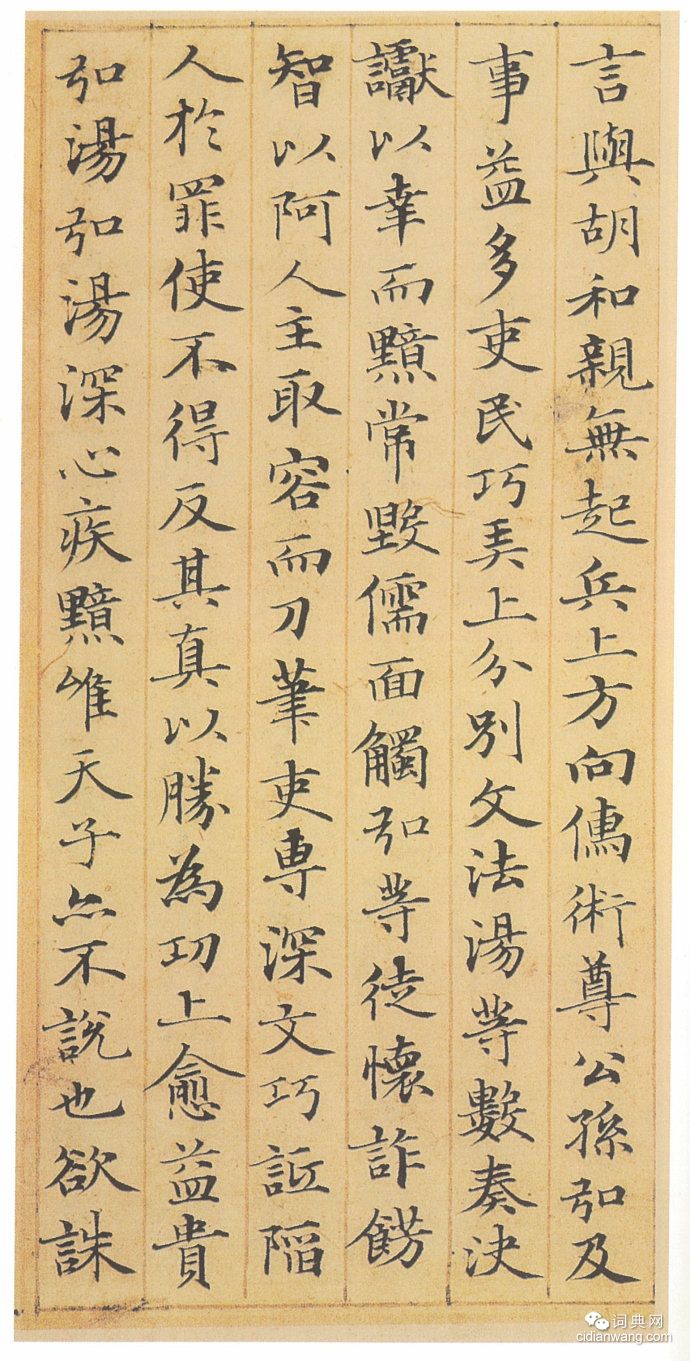 言與胡和親無起兵上方向儒術尊公孫弘及
事益多吏民巧弄上分别文法湯等數奏決
讞以幸而黯常毀儒面觸弘等徒懷詐飾
智以阿人主取容而刀筆吏專深文巧詆陷
人於罪使不得反其真以勝為功上愈益貴
弘湯弘湯深心疾黯唯天子亦不說也欲誅
词典网
cidianwang.com